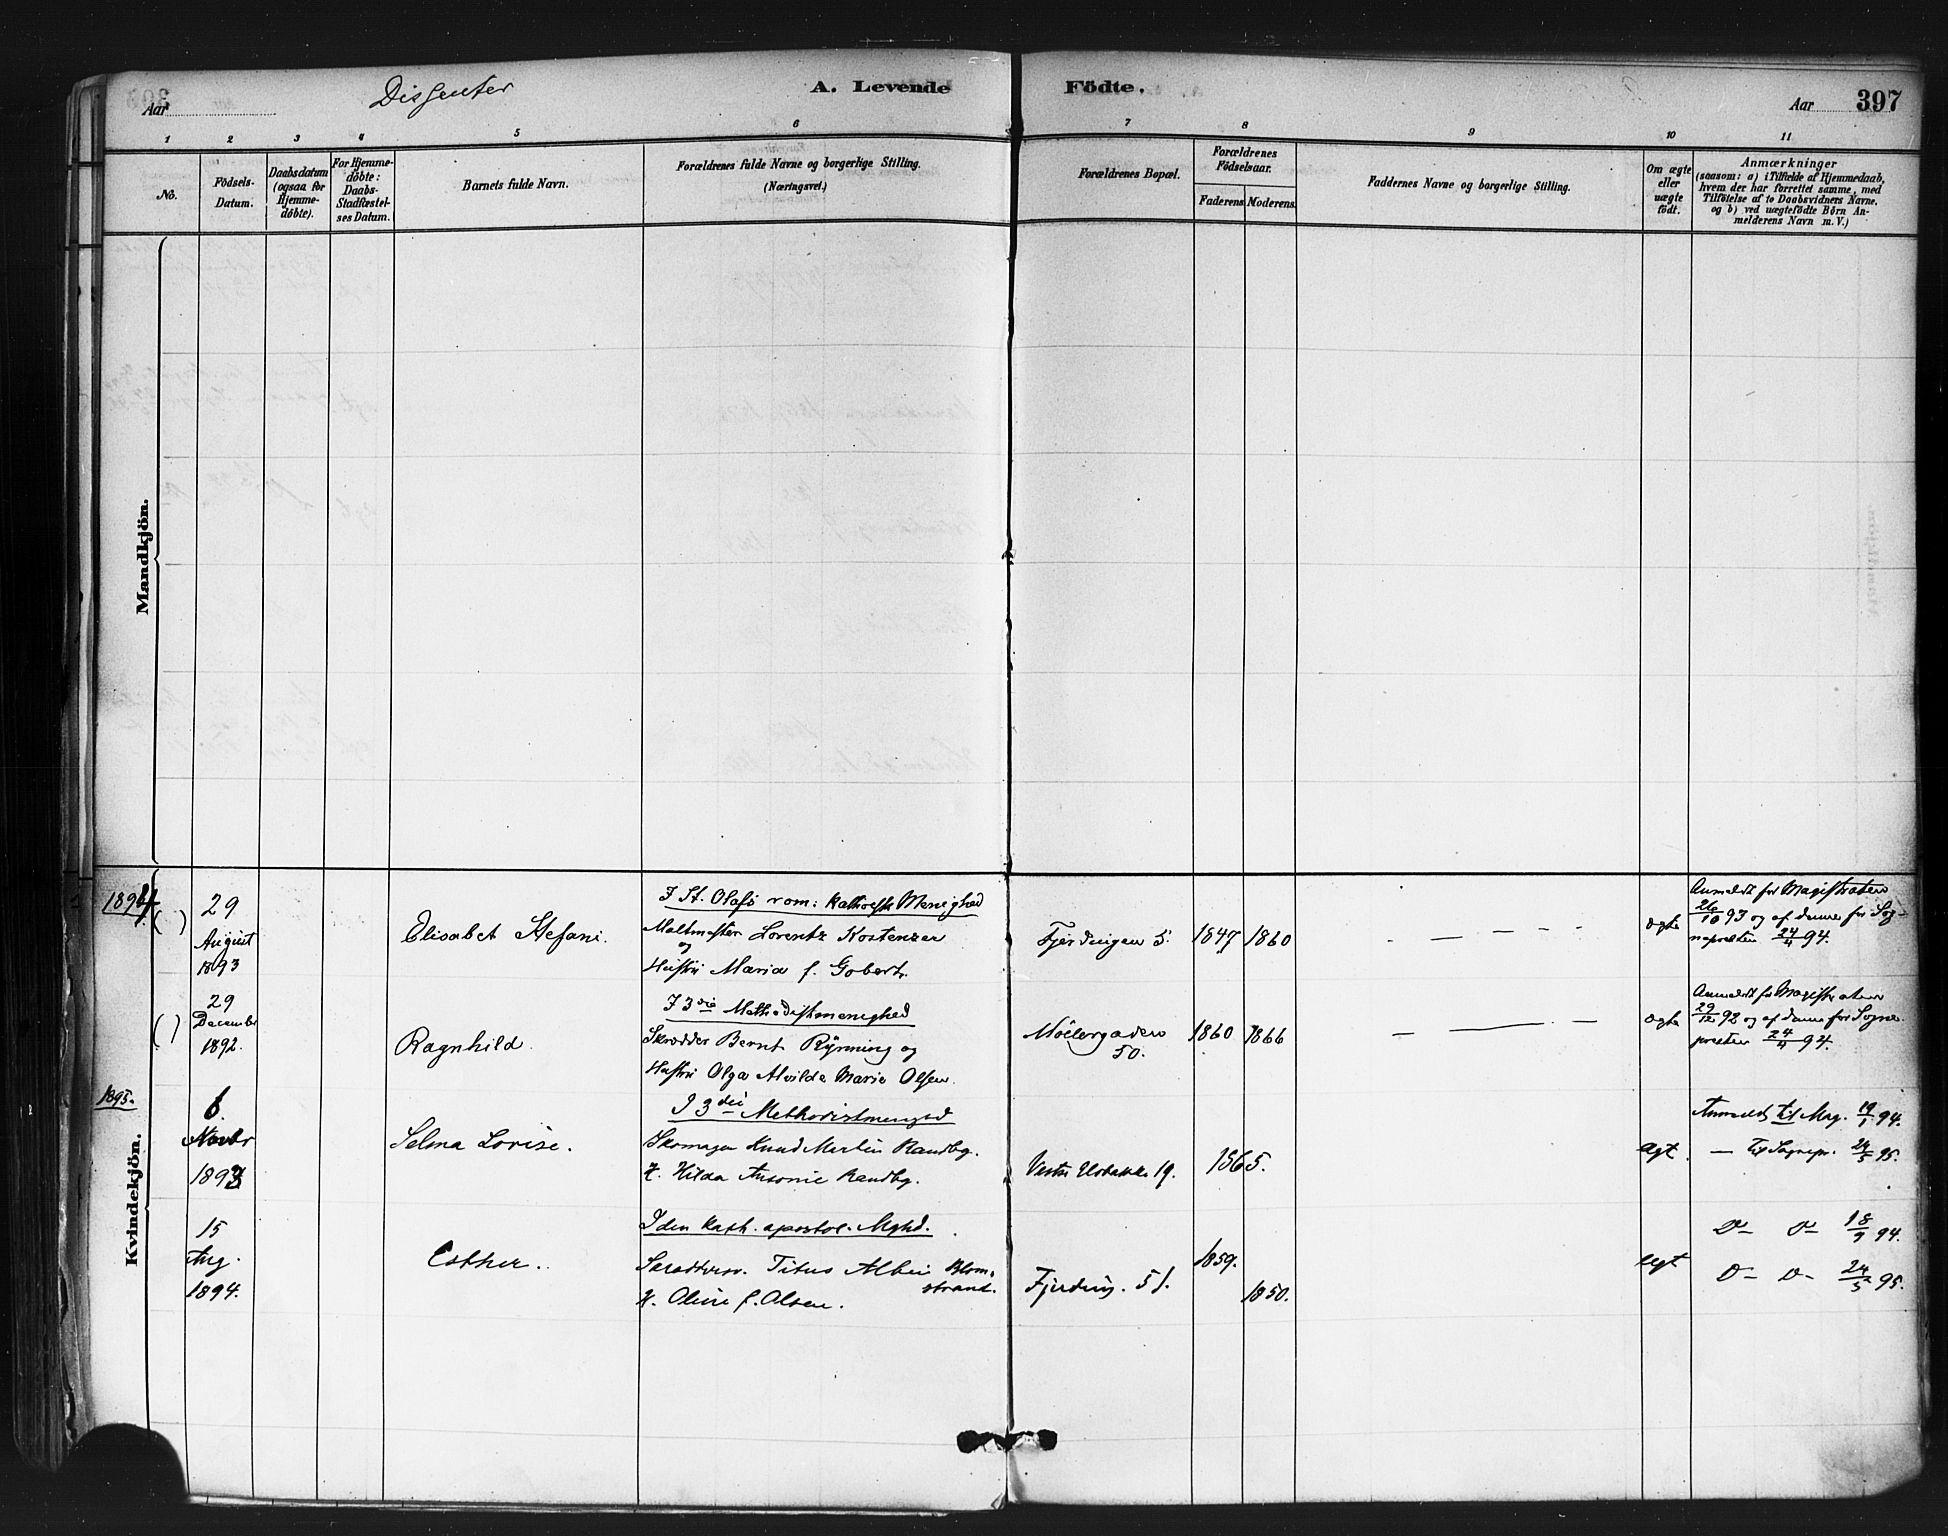 Dissenter
A. Levende Födte.
Aar
Aar 397
1 2 3 4 5 6 7 8 9 10 11
No.
Födsels-
Datum.
Daabsdatum
(ogsaa for
Hjemme-
döbte).
For Hjemme-
döbte:
Daabs-
Stadfæstel-
ses Datum.
Barnets fulde Navn.
Forældrenes fulde Navne og borgerlige Stilling.
(Næringsvei.)
Forældrenes Bopæl.
Forældrenes
Födselsaar.
Faderens Moderens.
Faddernes Navne og borgerlige Stilling.
Om ægte
eller
uægte
födt.
Anmærkninger
(saasom: a) i Tilfælde af Hjemmedaab,
hvem der har forrettet samme, med
Tilföielse af to Daabsvidners Navne,
og b) ved uægtefödte Börn An-
melderens Navn m. V.)
Mandkjön.
Kvindekjön.
1894
( )
29
August
1893
Elisabet Stefani.
I St. Olafs rom: katholske Menighed
Maltmester Lorentz Kostenzer
og
Hustru Maria f. Gobert.
Fjerdingen 5.
1847 1860
ægte
Anmeldt for Magistraten
26/10 93 og af denne for Sog-
nepresten 24/4 94.
( )
29
December
1892.
Ragnhild.
I 3die Methodistmenighed
Skrædder Bernt Rynning og
Hustru Olga Alvilda Marie Olsen.
Möllergaden
50.
1860 1866
ægte
Anmeldt for Magistraten
29/12 92 og af denne for Sogne-
presten 24/4 94.
1895.
6.
Novbr
1893
Selma Lovise.
I 3die Methodistmenghd
Skomager Knud Martin Randbg.
H. Hilda Antonie Randbg.
Vestre Elvbakke 19.
1865.
ægt.
Anmeldt til Mag. 19/1 94.
— til Sognepr. 24/5 95.
15
Aug.
1894.
Esther.
I den kath. apostol. Mghd.
Skræddersv. Titus Albin Blom-
strand.
H. Oline f. Olsen.
Fjerding. 51.
1859.
1850.
ægt
D— D— 18/9 94.
D— D— 24/5 95.